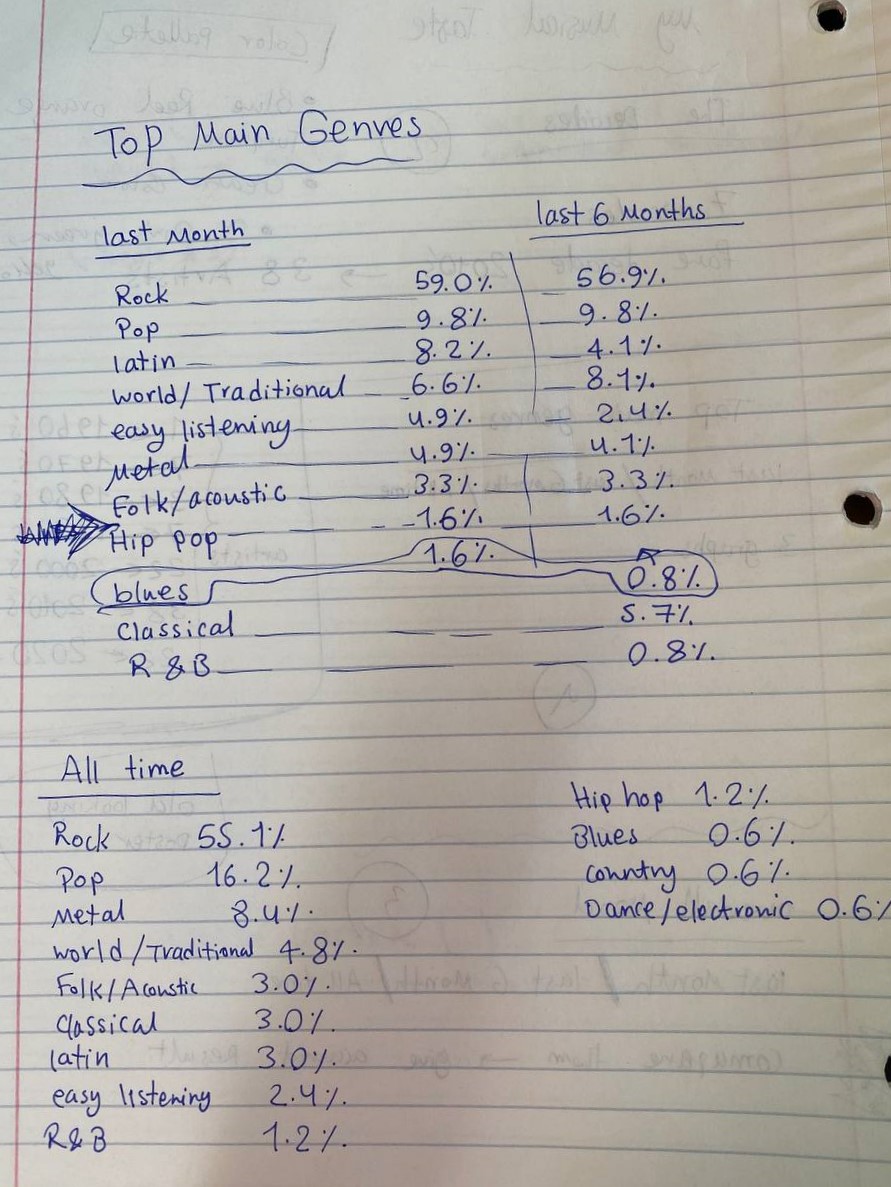 Top Main Genres
last Month last 6 Months
Rock 59.0% 56.9%
Pop 9.8% 9.8%
latin 8.2% 4.1%
world/ Traditional 6.6% 8.1%
easy listening 4.9% 2.4%
Metal 4.9% 4.1%
Folk/acoustic 3.3% 3.3%
Hip pop 1.6% 1.6%
blues 1.6% 0.8%
Classical 5.7%
R & B 0.8%
All time
Rock 55.1%
Pop 16.2%
Metal 8.4%
world/Traditional 4.8%
Folk/Acoustic 3.0%
Classical 3.0%
latin 3.0%
easy listening 2.4%
R&B 1.2%
Hip hop 1.2%
Blues 0.6%
country 0.6%
Dance/electronic 0.6%